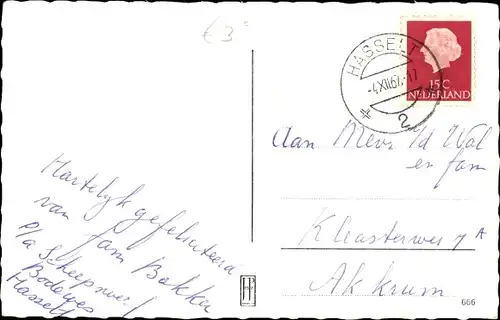 €3
HASSELT
-4.XII.67.-17
2
15 C
NEDERLAND
Aan Mevr Id Wal
en fam
Kloosterweg 7 A
Akkrum
Hartelyk gefeliciteerd
van fam Bakker
p/a Scheepswerf
Bodewes
Hasselt
H
666